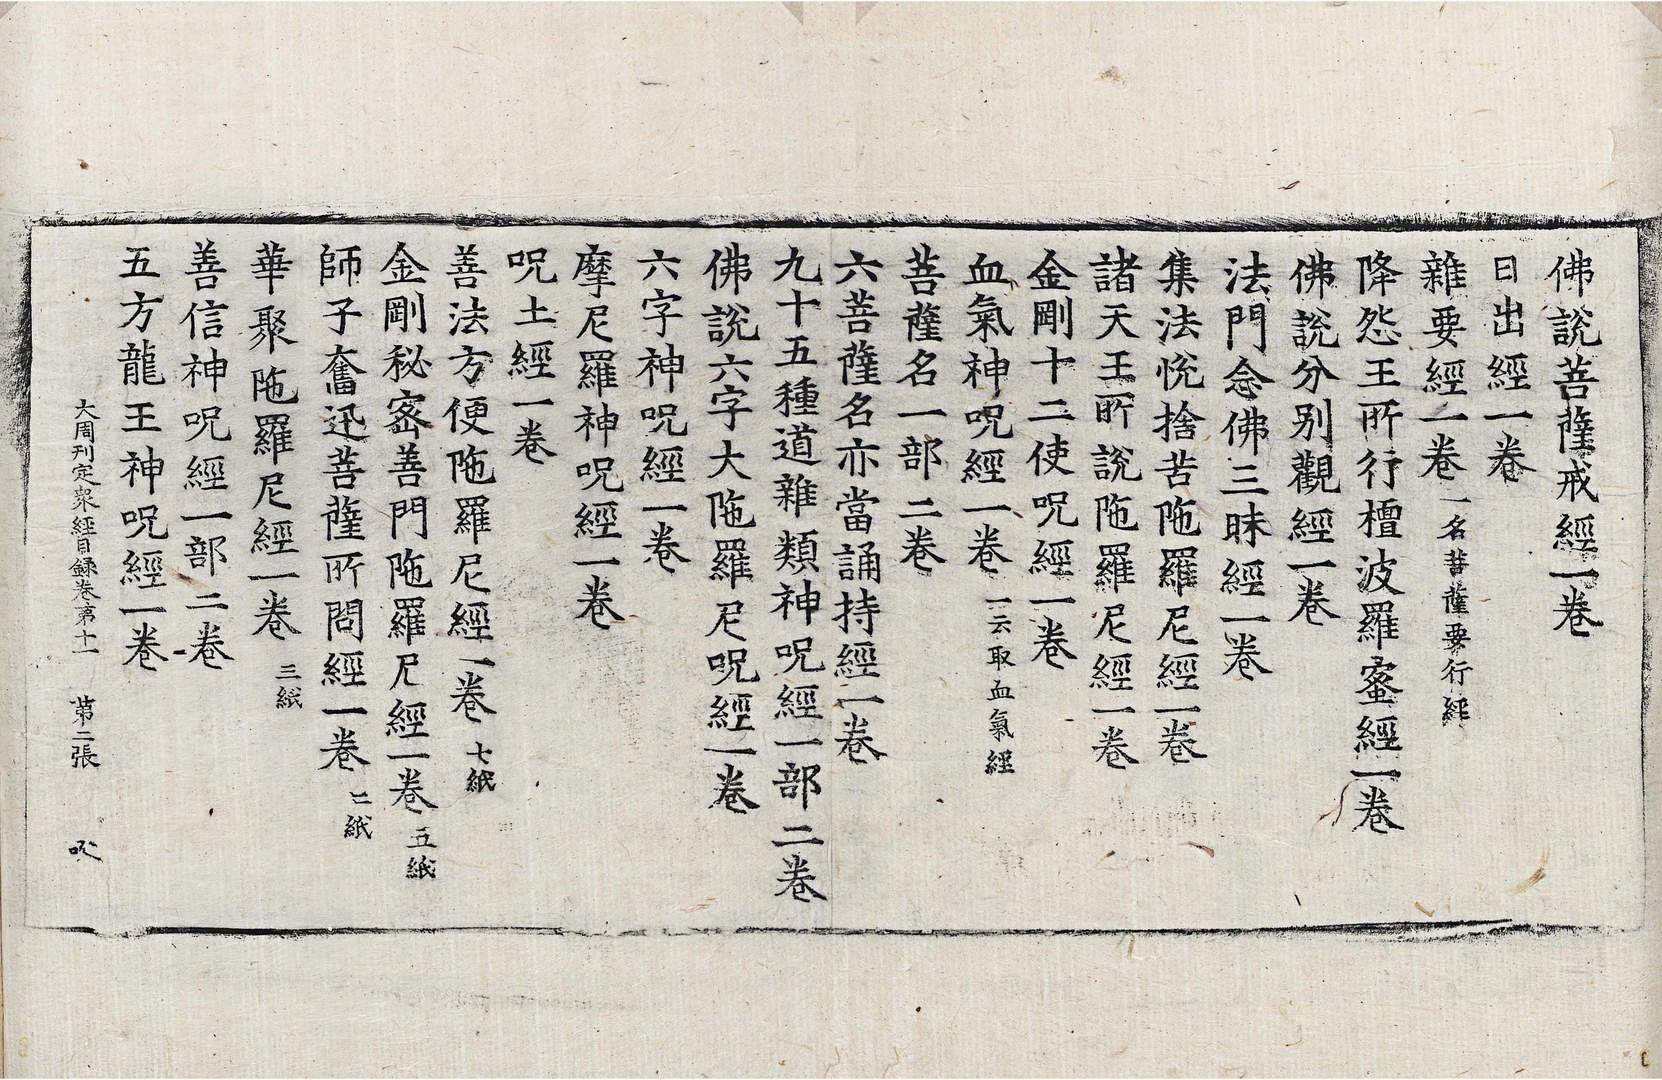 佛說菩薩戒經一卷
日出經一卷
雜要經一卷一名菩薩要行經
降怨王所行檀波羅蜜經一卷
佛說分別觀經一卷
法門念佛三昧經一卷
集法悅捨苦陁羅尼經一卷
諸天王所說陁羅尼經一卷
金剛十二使呪經一卷
血氣神呪經一卷一云取血氣經
菩薩名一部二卷
六菩薩名亦當誦持經一卷
九十五種道雜類神呪經一部二卷
佛說六字大陁羅尼呪經一卷
六字神呪經一卷
摩尼羅神呪經一卷
呪土經一卷
善法方便陁羅尼經一卷七紙
金剛秘密善門陁羅尼經一卷五紙
師子奮迅菩薩所問經一卷二紙
華聚陁羅尼經一卷三紙
善信神呪經一部二卷
五方龍王神呪經一卷
大周刊定衆經目録卷第十一 第二張